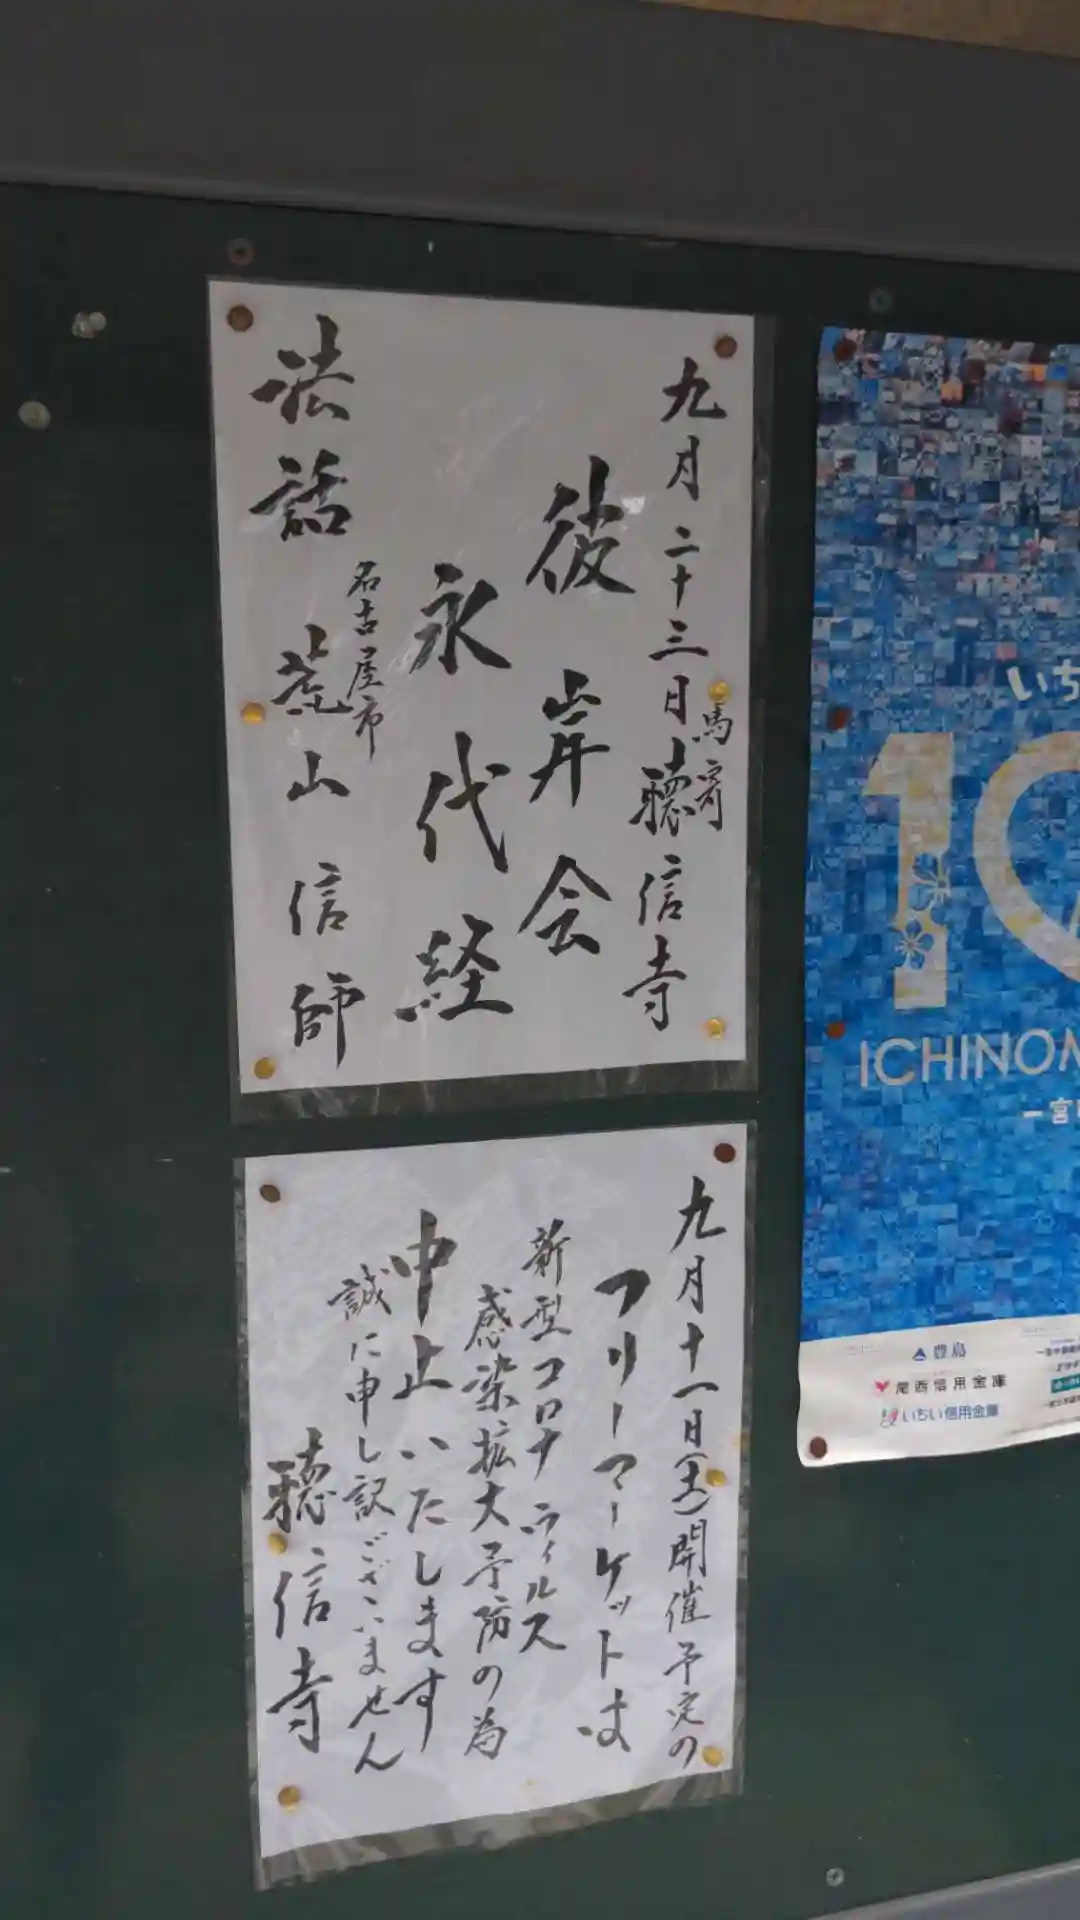 九月二十三日 馬寄 聽信寺
彼岸会
永代経
名古屋市
法話 荒山信師
九月十一日(土)開催予定の
フリーマーケットは
新型コロナウィルス
感染拡大予防の為
中止いたします
誠に申し訳ございません
聽信寺
いち
10
ICHINOM
一宮
豊島
尾西信用金庫
いちい信用金庫